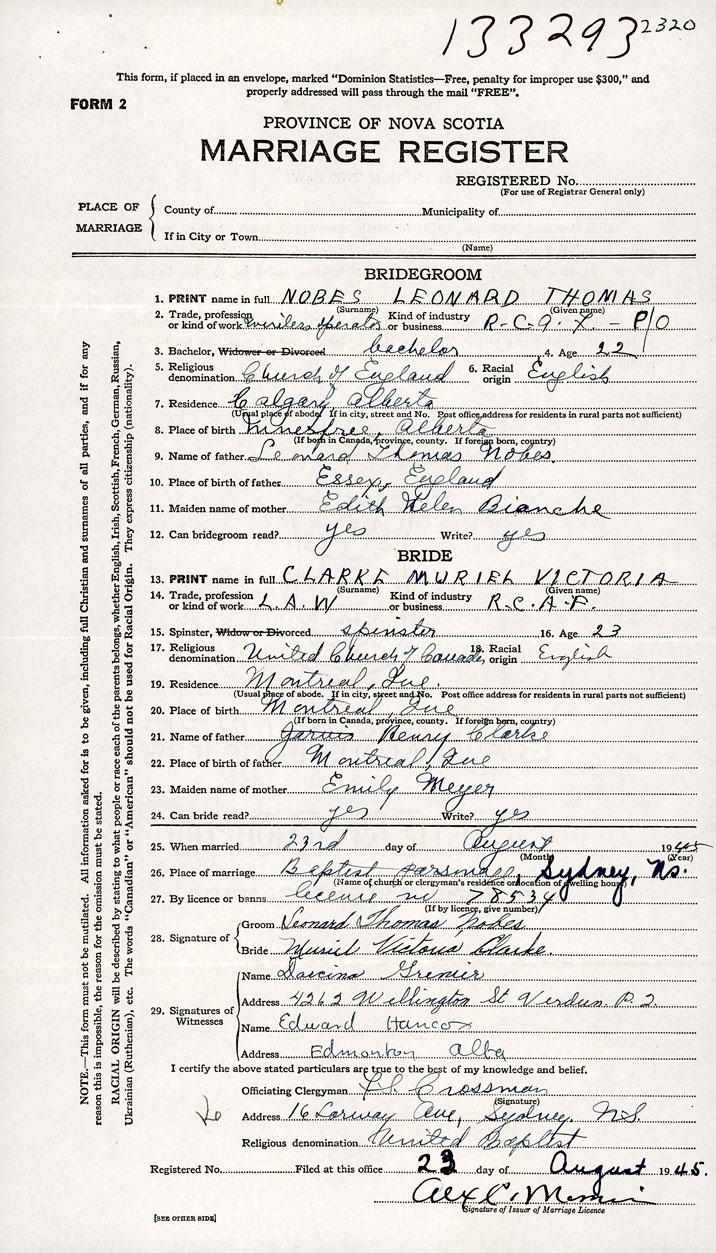 133293 2320
This form, if placed in an envelope, marked "Dominion Statistics—Free, penalty for improper use $300," and
properly addressed will pass through the mail "FREE".
FORM 2
PROVINCE OF NOVA SCOTIA
MARRIAGE REGISTER
REGISTERED No.
(For use of Registrar General only)
PLACE OF MARRIAGE
County of Municipality of
If in City or Town
(Name)
BRIDEGROOM
1. PRINT name in full NOBES LEONARD THOMAS
(Surname) (Given name)
2. Trade, profession or kind of work wireless operator Kind of industry or business R.C.A.F. - P/O
3. Bachelor, Widower or Divorced bachelor 4. Age 22
5. Religious denomination Church of England 6. Racial origin English
7. Residence Calgary Alberta
(Usual place of abode. If in city, street and No. Post office address for residents in rural parts not sufficient)
8. Place of birth Innesfree, Alberta
(If born in Canada, province, county. If foreign born, country)
9. Name of father Leonard Thomas Nobes.
10. Place of birth of father Essex, England
11. Maiden name of mother Edith Helen Bianche
12. Can bridegroom read? yes Write? yes
BRIDE
13. PRINT name in full CLARKE MURIEL VICTORIA
(Surname) (Given name)
14. Trade, profession or kind of work L.A.W Kind of industry or business R.C.A.F.
15. Spinster, Widow or Divorced spinster 16. Age 23
17. Religious denomination United Church of Canada 18. Racial origin English
19. Residence Montreal, Que
(Usual place of abode. If in city, street and No. Post office address for residents in rural parts not sufficient)
20. Place of birth Montreal, Que
(If born in Canada, province, county. If foreign born, country)
21. Name of father Jarvis Henry Clarke
22. Place of birth of father Montreal, Que
23. Maiden name of mother Emily Meyer
24. Can bride read? yes Write? yes
25. When married 23rd day of August 1945
(Month) (Year)
26. Place of marriage Baptist parsonage, Sydney, Ns.
(Name of church or clergyman's residence or location of dwelling house)
27. By licence or banns licence no 78534
(If by licence, give number)
28. Signature of
Groom Leonard Thomas Nobes
Bride Muriel Victoria Clarke.
29. Signatures of Witnesses
Name Grenier
Address 4262 Wellington St Verdun. P.2.
Name Edward Hancox
Address Edmonton Alba
I certify the above stated particulars are true to the best of my knowledge and belief.
Officiating Clergyman Crossman
(Signature)
Address 16 Ave, Sydney. N.S.
Religious denomination United Baptist
Registered No. Filed at this office 23 day of August 1945.
Alex
Signature of Issuer of Marriage Licence
[SEE OTHER SIDE]
NOTE.—This form must not be mutilated. All information asked for is to be given, including full Christian and surnames of all parties, and if for any
reason this is impossible, the reason for the omission must be stated.
RACIAL ORIGIN will be described by stating to what people or race each of the parents belongs, whether English, Irish, Scottish, French, German, Russian,
Ukrainian (Ruthenian), etc. The words "Canadian" or "American" should not be used for Racial Origin. They express citizenship (nationality).